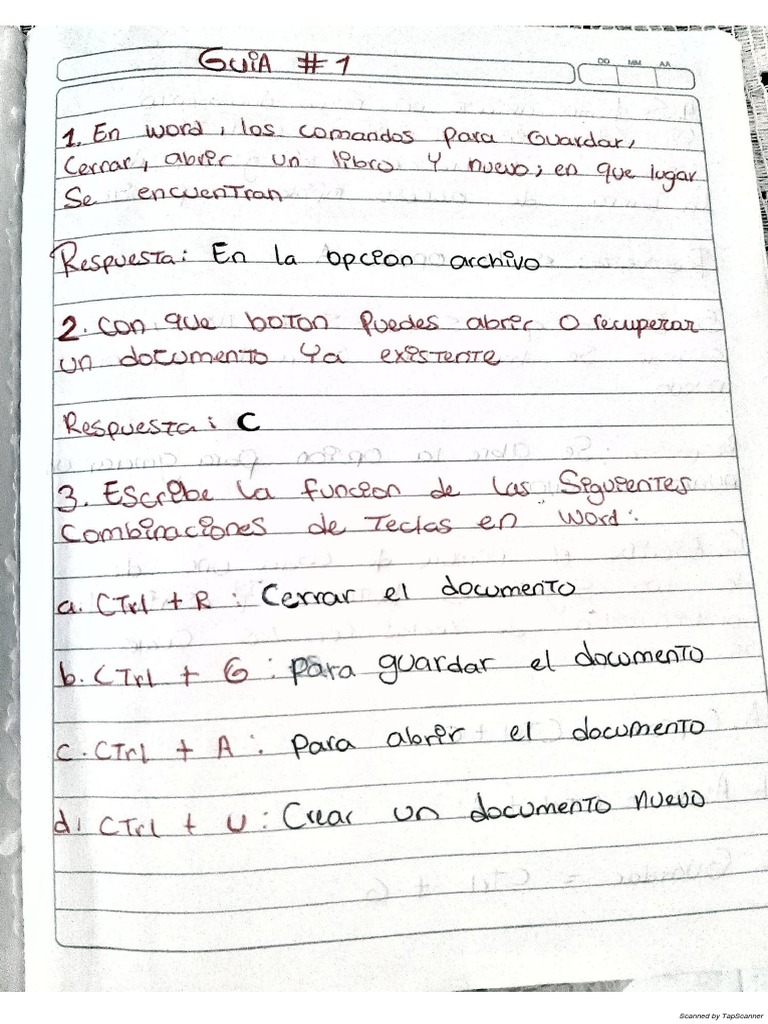 GUIA # 1
DD MM AA
1. En word, los comandos para Guardar,
Cerrar, abrir un libro y nuevo; en que lugar
se encuentran
Respuesta: En la opcion archivo
2. con que boton puedes abrir o recuperar
un documento ya existente
Respuesta: C
3. Escribe la funcion de las siguientes
combinaciones de teclas en "word":
a. CTrl + R : Cerrar el documento
b. CTrl + G : para guardar el documento
c. CTrl + A : para abrir el documento
d. CTrl + U : Crear un documento nuevo
Guardar = CTrl + G
Scanned by TapScanner